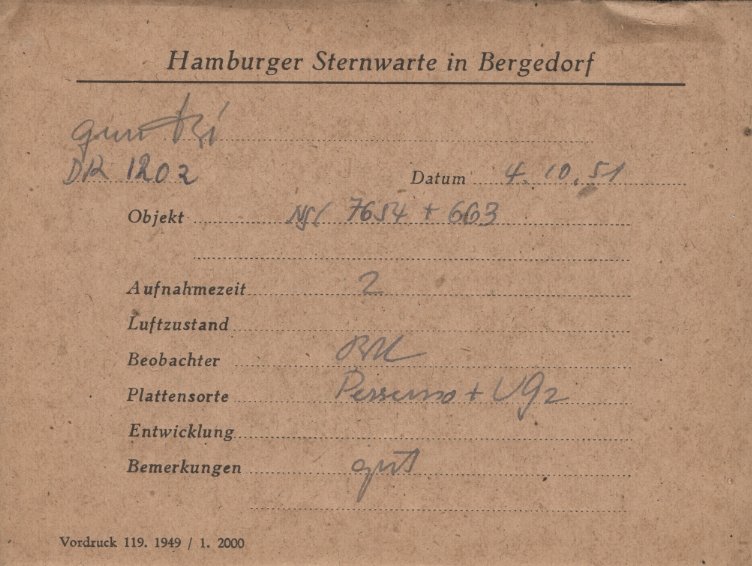 Hamburger Sternwarte in Bergedorf
DR 1202
Datum 4. 10. 51
Objekt NGC 7654 + 663
Aufnahmezeit 2
Luftzustand
Beobachter
Plattensorte + UG2
Entwicklung
Bemerkungen gut
Vordruck 119. 1949 / 1. 2000